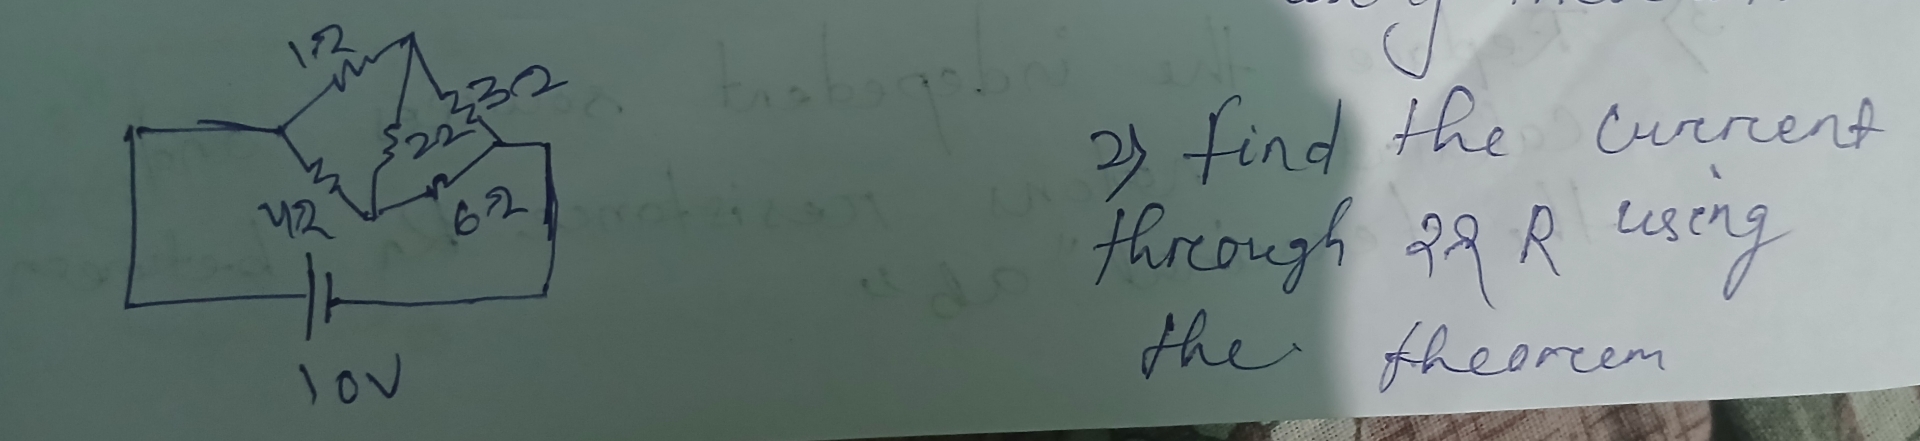 1Ω
3Ω
2Ω
4Ω
6Ω
10V
2) find the current
through 2Ω R using
the theorem